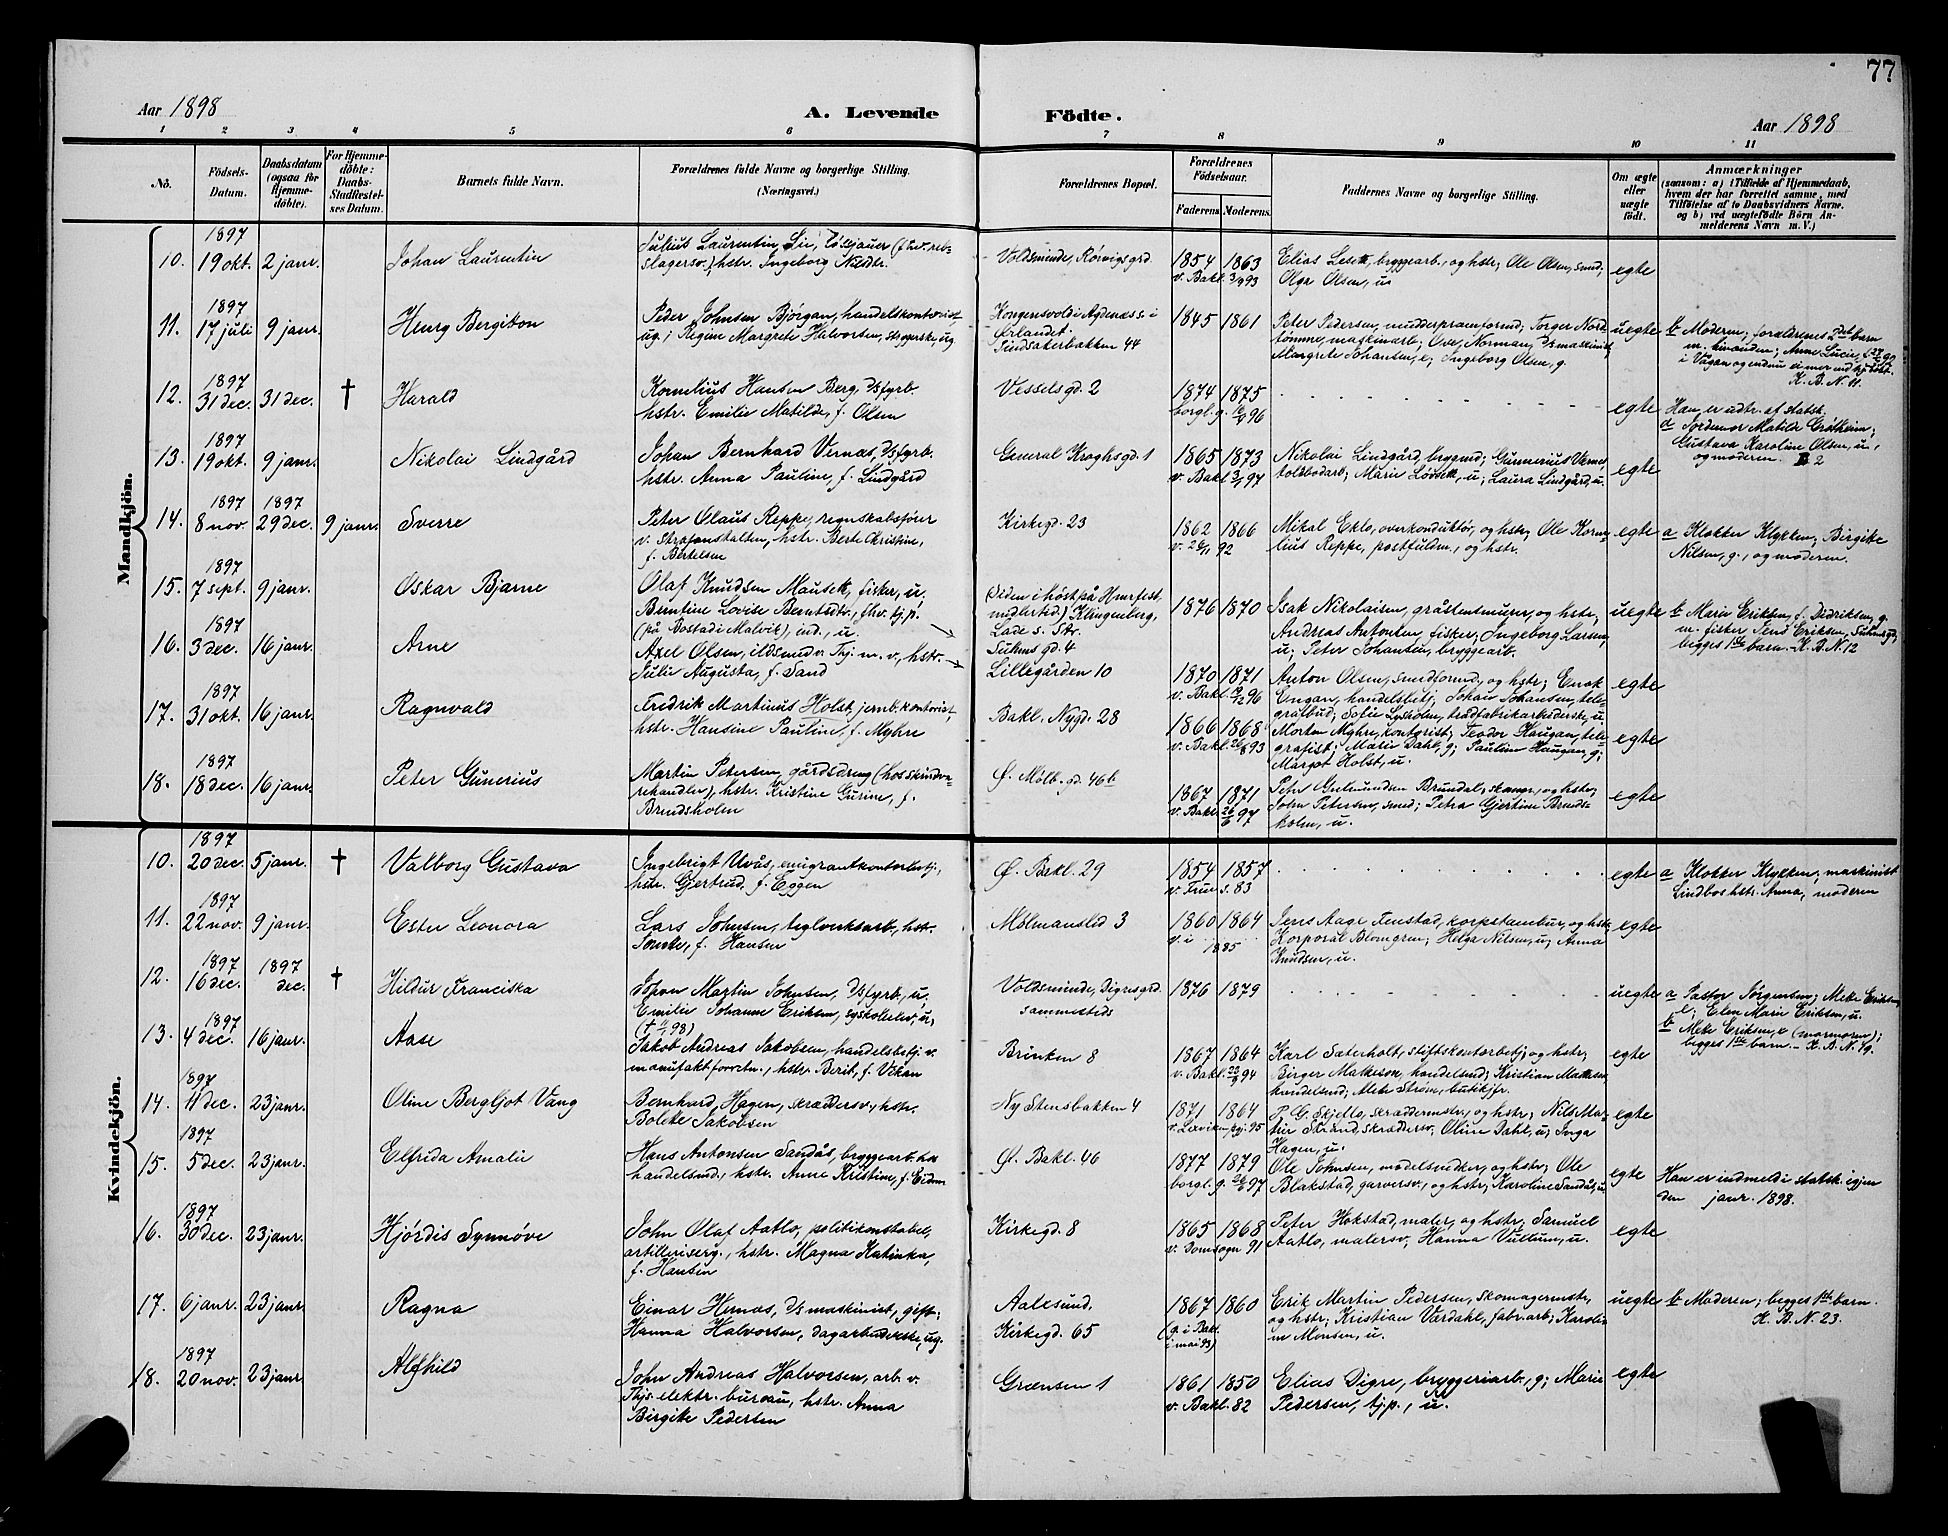 77
Aar 1898 A. Levende Födte. Aar 1898
1 2 3 4 5 6 7 8 9 10 11
No.
Födsels-
Datum.
Daabsdatum
(ogsaa for
Hjemme-
döbte).
For Hjemme-
döbte:
Daabs-
Stadfæstel-
ses Datum.
Barnets fulde Navn.
Forældrenes fulde Navne og borgerlige Stilling.
(Næringsvei.)
Forældrenes Bopæl.
Forældrenes
Födselsaar.
Faderens. Moderens.
Faddernes Navne og borgerlige Stilling.
Om ægte
eller
uægte
födt.
Anmærkninger
(saasom: a) i Tilfælde af Hjemmedaab,
hvem der har forrettet samme, med
Tilföielse af to Daabsvidners Navne,
og b) ved uægtefödte Börn An-
melderens Navn m. V.)
Mandkjön.
1897
10. 19 okt. 2 janr. Johan Laurentin
Julius Laurentin Lie, løsjauer (fhv. reb-
slagersv.) hstr. Ingeborg
Voldsminde, Rövigsgrd.
1854 1863
v. Bakl. 3/9 93
Elias Lesetk, bryggearb., og hstr; Ole Olsen, smed,
Olga Olsen, u
egte
1897
11. 17 juli 9 janr. Henry Bergiton
Peter Johnsen Bjørgan, handelskontorist,
ug; Regine Margrete Halvorsen, ug
Kongensvold i Agdenæs s. i
Ørlandet.
Sindsakerbakken 44
1845 1861
Peter Pedersen, mudderpramformd; Torger Nord-
tømme, maskinarb; Ove Norman, d/s maskinist,
Margrete Johansen, e; Ingeborg Olsen, g.
uegte
b Moderen; forældrenes 2det barn
K. B. N. 11.
1897
12. 31 dec. 31 dec. † Harald
Kornelius Hansen Berg, d/s fyrb.
hstr. Emilie Matilde, f. Olsen
Vesselsgd. 2
1874 1875
borgl. g. 96
egte
Han er udtr. af statsk.
a Jordemor Matilde Grøtheim;
Gustava Karoline Olsen, u,
og moderen. 2
1897
13. 19 okt. 9 janr. Nikolai Lindgård
Johan Bernhard Vernæs, d/s fyrb.
hstr. Anna Pauline, f. Lindgård
General Kroghsgd. 1
1865 1873
v. Bakl. 3/1 97
Nikolai Lindgård, brygmd; Gunnerius Vernes,
toldbodarb; Marie Løvsetk, u; Laura Lindgård, u.
egte
1897 1897
14. 8 nov. 29 dec. 9 janr. Sverre
Peter Olaus Reppe, regnskabsfører
v. Strafanstalten, hstr. Berte Christine,
f. Bertelsen
Kirkegd. 23
1862 1866
v. 26/1 92
Mikal Eklo, overkonduktør, og hstr; Ole Korne-
lius Reppe, postfuldm., og hstr.
egte
a Klokker Klykken; Birgitte
Nilsen, g., og moderen.
1897
15. 7 sept. 9 janr. Oskar Bjarne
Olaf Knudsen Mausetk, fisker, u.
Berntine Lovise Berntsdtr., fhv. tj.p.
(på Bostad i Malvik), ind., u.
(siden i høst på Hamrfest
midlertid.) Klingenberg,
Lade s. Str.
1876 1870
Isak Nikolaisen, gråstensmurer, og hstr;
Andreas Antonsen, fisker; Ingeborg Larsen,
u; Peter Johansen, bryggearb.
uegte
b Marie Eriksen, f. Didriksen, g.
m. fisker Jens Eriksen, Suhmsgd,
begges 1ste barn. K. B. N. 12
1897
16. 3 dec. 16 janr. Arne
Axel Olsen, ildsmed v. Thj. m. v., hstr.
Julie Augusta, f. Sand
Suhms gd. 4
Lillegården 10
1870 1871
v. Bakl. 96
Anton Olsen, smedformd, og hstr; Enok
Engan, handelsbetj; Johan Johansen, tele-
grafbud; Sofie Lysholm, trådfabrikarbeiderske, u.
egte
1897
17. 31 okt. 16 janr. Ragnvald
Fredrik Martinus Holst, jernb. kontorist,
hstr. Hansine Pauline, f. Myhre
Bakl. Nygd. 28
1866 1868
v. Bakl. 26/8 93
Morten Myhre, kontorist; Teodor Haugan, tele-
grafist; Marie Dahl, g; Pauline Haugan, g;
Margot Holst, u.
egte
1897
18. 18 dec. 16 janr. Peter Gunerius
Martin Petersen, gårdsdreng (hos skindva-
rehandler), hstr. Kristine Gurine, f.
Brendsholm
Ø. Møllb. gd. 46b
1867 1871
v. Bakl. 26/6 97
Peter Gulmundsen Brundal, skomr, og hstr;
John Petersen, smed; Petra Gjertine Brends-
holm, u.
egte
Kvindekjön.
1897
10. 20 dec. 5 janr. † Valborg Gustava
Ingebrigt Uvås, emigrantkontorbetj.,
hstr. Gjertrud f. Eggen
Ø. Bakl. 29
1854 1857
v. Frue s. 83
egte
a Klokker Klykken; maskinist
Lindbos hstr. Anna, moderen
1897
11. 22 nov. 9 janr. Ester Leonora
Lars Johnsen, teglverksarb., hstr.
f. Hansen
Mølmansled 3
1860 1864
v. i 1885
Jens Aage Fenstad, korpstambur, og hstr;
Korporal Blomgren; Helga Nilsen, u; Anna
Knudsen, u.
egte
1897 1897
12. 16 dec. dec. † Hildur Franciska
Johan Martin Johnsen, d/s fyrb., u.
Emilie Johanne Eriksen, syskoleelev, u;
Voldsminde, Digresgrd.
sammesteds
1876 1879
uegte
a Pastor Jørgensen; Mette Eriksen,
e; Elen Marie Eriksen, u.
b Mette Eriksen, e (mormoren);
begges 1ste barn. K. B. N. 19.
1897
13. 4 dec. 16 janr. Aase
(† 98)
Jakob Andreas Jakobsen, handelsbetj. v.
manufakt forretn., hstr. Berit, f. Vikan
Brinken 8
1867 1864
v. Bakl. 94
Karl Saterholt, stiftskontorbetj, og hstr;
Birger Matheson, handelsmd; Kristian Mathesen,
handelsmd; Strøm, butikjfr.
egte
1897
14. 11 dec. 23 janr. Oline Bergljot Vang
Bernhard Hagen, skræddersv., hstr.
Bolette Jakobsen
Ny Stensbakken 4
1871 1864
v. Lexviken pgj. 95
P. G. Skjetlo, skræddermstr, og hstr; Nils Ma-
Strand, skræddersv; Oline Dahl, u; Inga
Hagen, u.
egte
1897
15. 5 dec. 23 janr. Elfrida Amalie
Hans Antonsen Sandås, bryggearb. hos
handelsmd, hstr. Anne Kristine, f. Eidem
Ø. Bakl. 46
1877 1879
borgl. g. 97
Ole Johnsen, modelsnedker, og hstr; Ole
Blakstad, garversv., og hstr; Karoline Sandås, u.
egte
Han er indmeldt i statsk. igjen
den janr. 1898.
1897
16. 30 dec. 23 janr. Hjørdis Synnøve
John Olaf Aatlo, politikonstabel,
artilleriserg., hstr. Magna Katinka,
f. Hansen
Kirkegd. 8
1865 1868
v. Domsogn 91
Peter Hokstad, maler, og hstr; Samuel
Aatlo, malersv; Hanna Vullum, u.
egte
17. 6 janr. 23 janr. Ragna
Einar Hernæs, d/s maskinist, gift;
Hanna Halvorsen, dagarbeiderske, ug.
Aalesund,
Kirkegd. 65
1867 1860
(g. i Bakl.
i mai 93)
Erik Martin Pedersen, skomagermstr,
og hstr; Kristian Værdahl, fabr. arb; Karoli-
ne Monsen, u.
uegte
b Moderen; begges 1ste barn.
K. B. N. 23.
1897
18. 20 nov. 23 janr. Alfhild
John Andreas Halvorsen, arb. v.
Thjs. elektr. bureau, hstr. Anna
Birgitte Pedersen
Grænsen 1
1861 1850
v. Bakl. 82
Elias Digre, bryggeriarb., g; Marie
Pedersen, tj.p., u.
egte